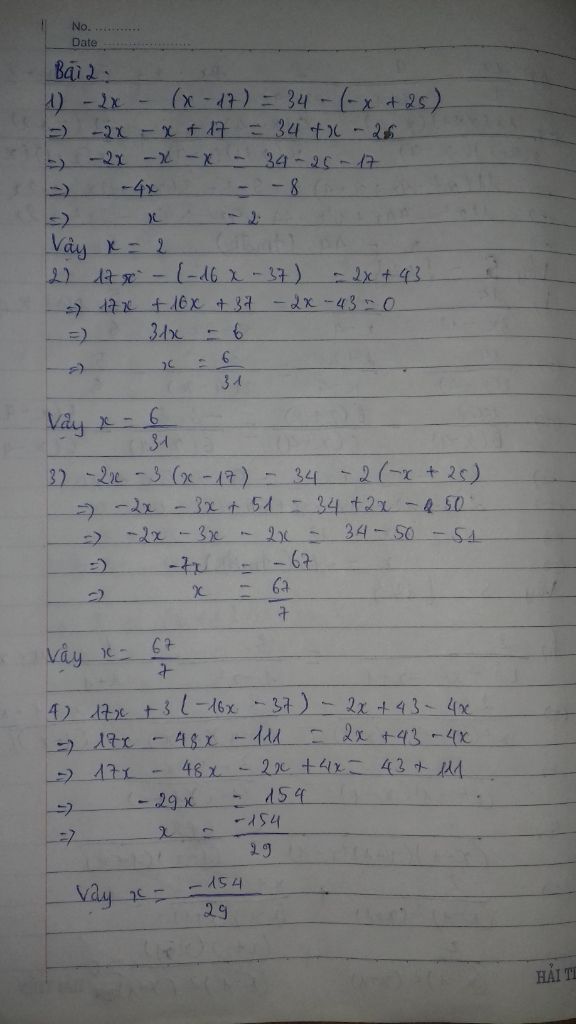 No. ...........
Date .......................
Bài 2:
1) -2x - (x - 17) = 34 - (-x + 25)
=> -2x - x + 17 = 34 + x - 25
=> -2x - x - x = 34 - 25 - 17
=> -4x = -8
=> x = 2
Vậy x = 2
2) 17x - (-16x - 37) = 2x + 43
=> 17x + 16x + 37 - 2x - 43 = 0
=> 31x = 6
=> x = 6/31
Vậy x = 6/31
3) -2x - 3(x - 17) = 34 - 2(-x + 25)
=> -2x - 3x + 51 = 34 + 2x - 50
=> -2x - 3x - 2x = 34 - 50 - 51
=> -7x = -67
=> x = 67/7
Vậy x = 67/7
4) 17x + 3(-16x - 37) = 2x + 43 - 4x
=> 17x - 48x - 111 = 2x + 43 - 4x
=> 17x - 48x - 2x + 4x = 43 + 111
=> -29x = 154
=> x = -154/29
Vậy x = -154/29
HẢI T